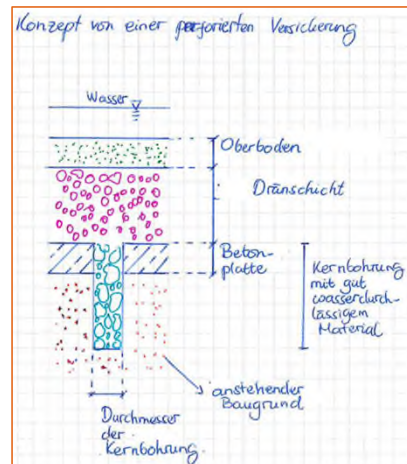 Konzept von einer perforierten Versickerung
Wasser
Oberboden
Dränschicht
Beton-
platte
Kernbohrung
mit gut
wasserdurch-
lässigem
Material
anstehender
Baugrund
Durchmesser
der
Kernbohrung